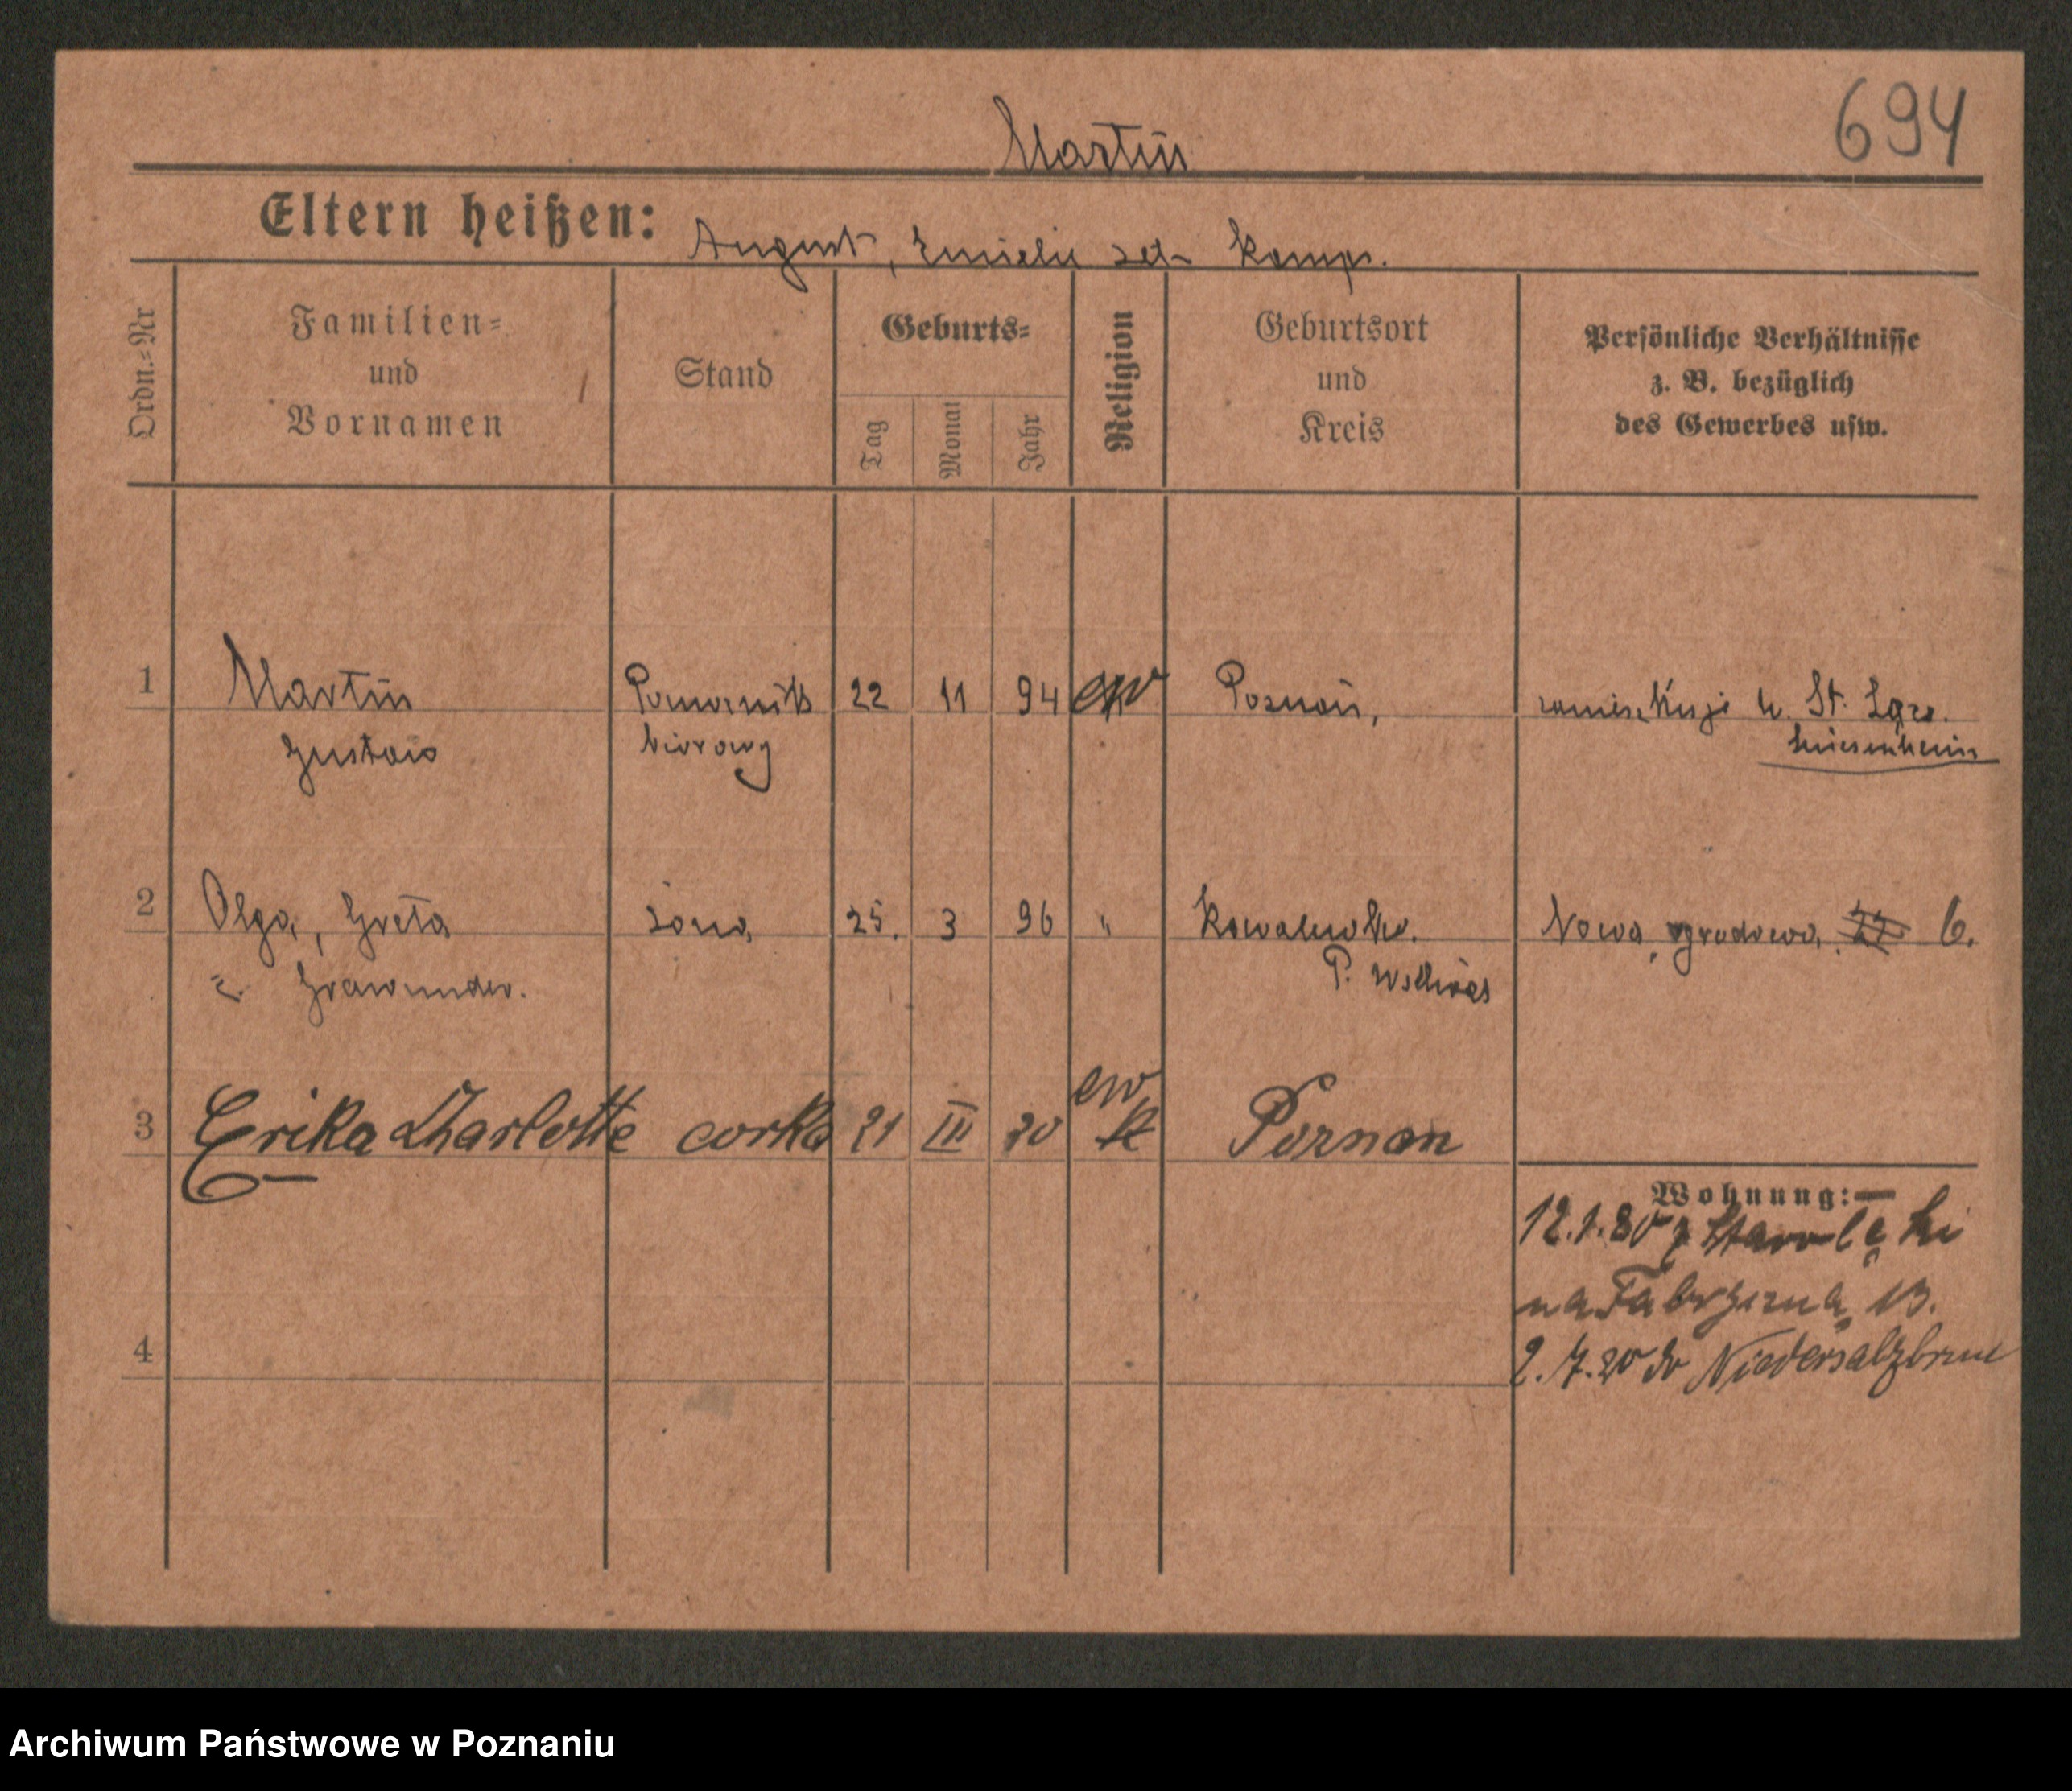 694
Martin
Eltern heißen: August, Emilie Kamp.
Ordn.=Nr
Familien=
und
Vornamen
Stand
Geburts=
Tag
Monat
Jahr
Religion
Geburtsort
und
Kreis
Persönliche Verhältnisse
z. B. bezüglich
des Gewerbes usw.
1 Martin Pomocnik 22 11 94 ew Poznań, St. Łaz.
Gustaw biurowy
2 Olga, Greta żona 25. 3 96 " Kowalewko. Nowa ogrodowa 6.
Grawunder.
3 Erika Charlotte corka 21 III 20 ew Poznan
Wohnung:
12.1.20 z Starołęki
na Fabryczną 13.
4
2.7.20 do Niedersalzbrun
Archiwum Państwowe w Poznaniu